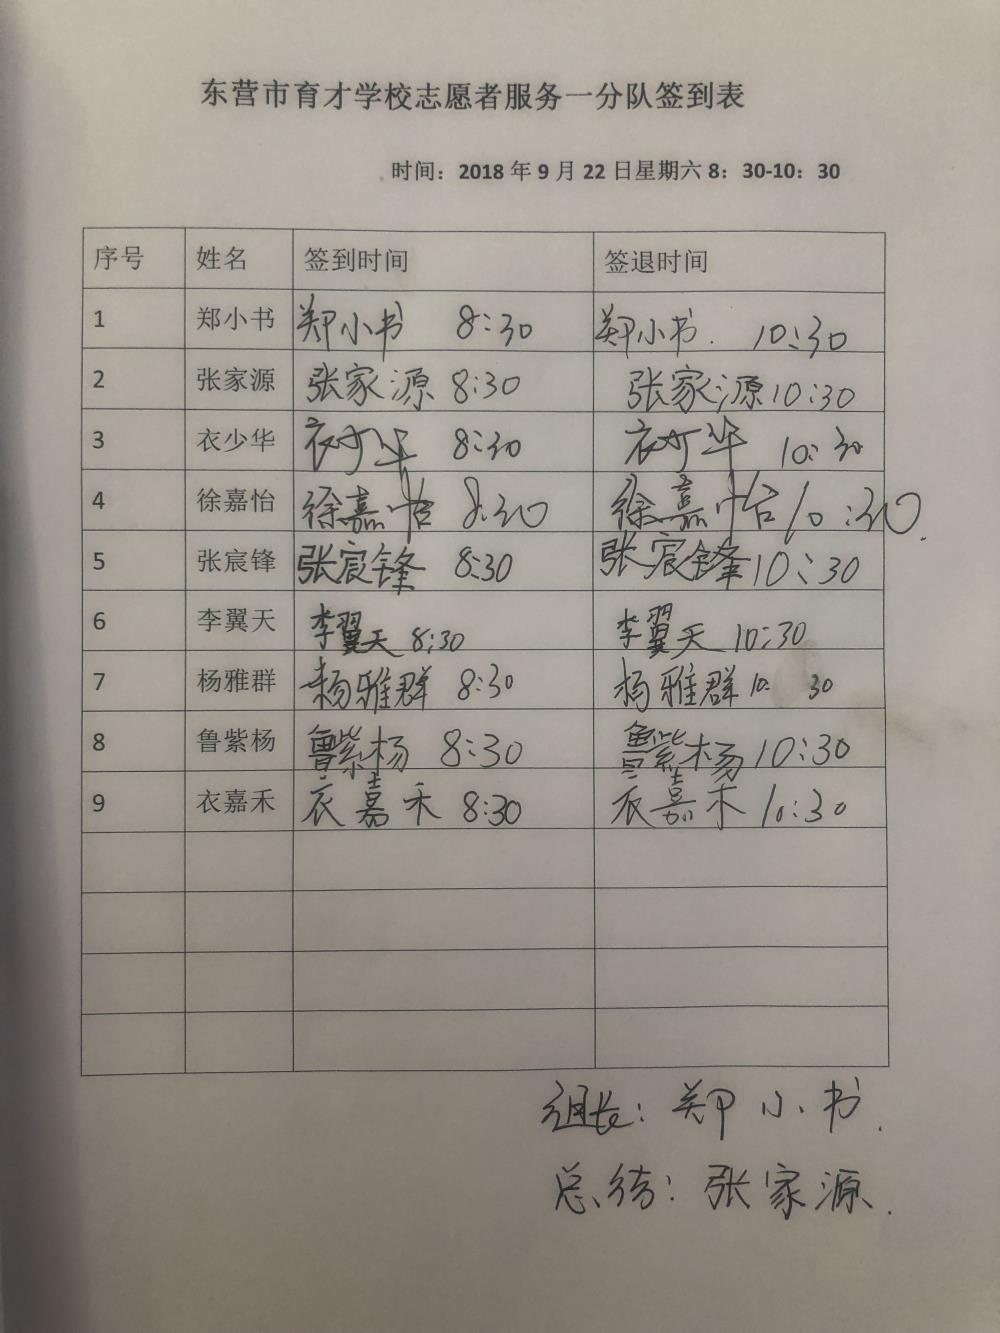 东营市育才学校志愿者服务一分队签到表
时间：2018 年 9 月 22 日星期六 8：30-10：30
序号 姓名 签到时间 签退时间
1 郑小书 郑小书 8:30 郑小书. 10:30
2 张家源 张家源 8:30 张家源 10:30
3 衣少华 衣少华 8:30 衣少华 10:30
4 徐嘉怡 徐嘉怡 8:30 徐嘉怡 10:30.
5 张宸锋 张宸锋 8:30 张宸锋 10:30
6 李翼天 李翼天 8:30 李翼天 10:30
7 杨雅群 杨雅群 8:30 杨雅群 10: 30
8 鲁紫杨 鲁紫杨 8:30 鲁紫杨 10:30
9 衣嘉禾 衣嘉禾 8:30 衣嘉禾 10:30
组长: 郑小书.
总结: 张家源.